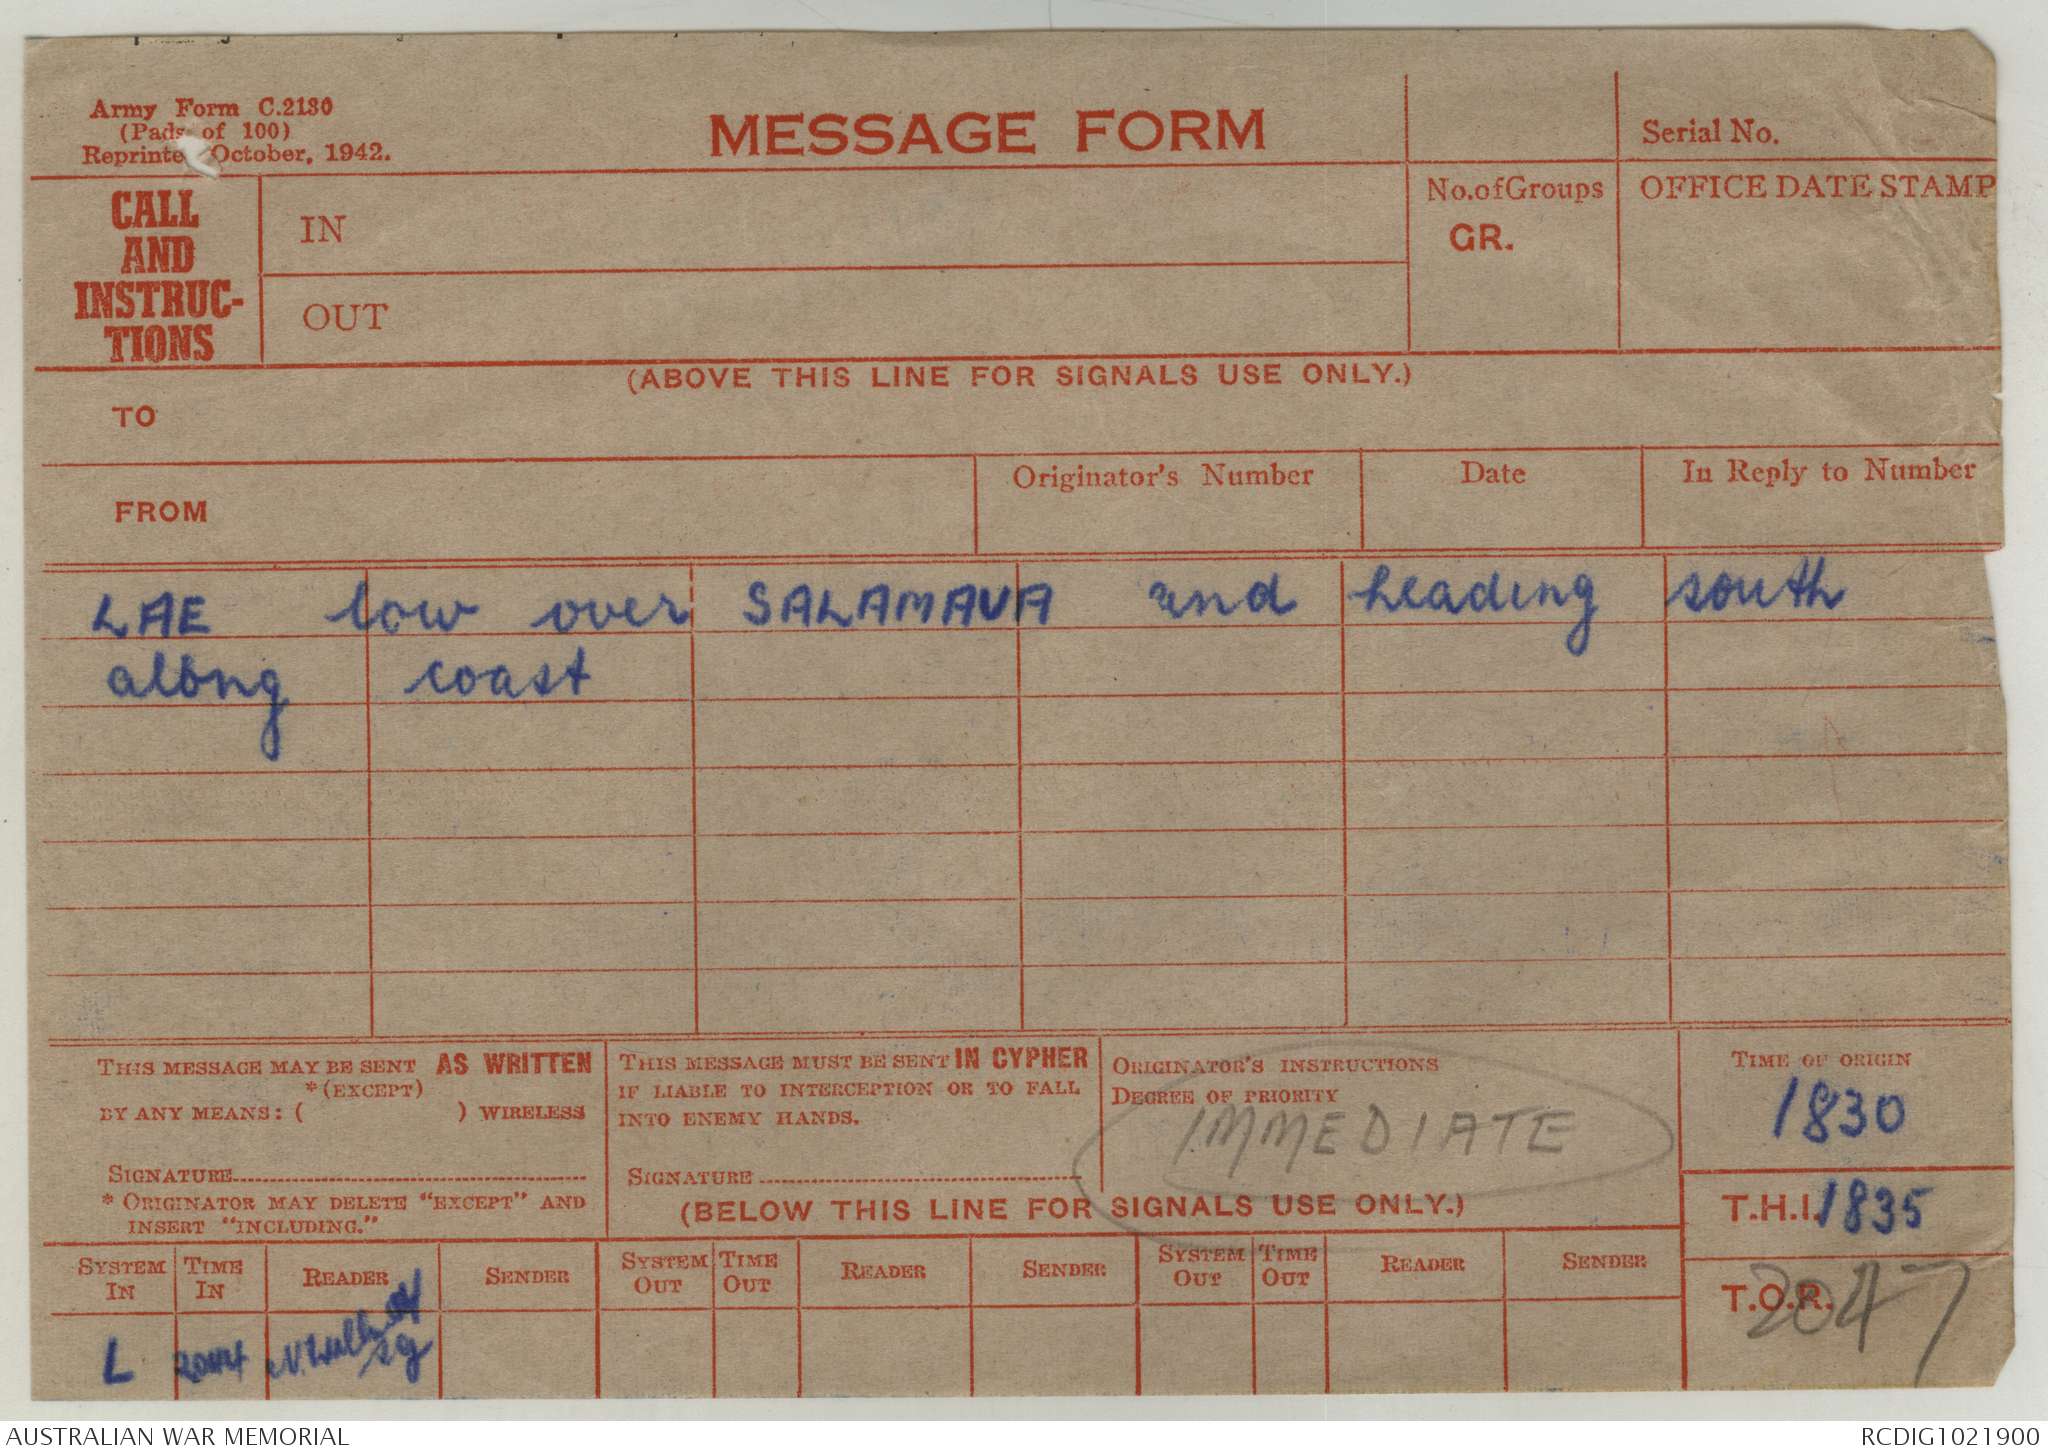 Army Form C.2130
(Pads of 100)
Reprinted October, 1942.
MESSAGE FORM
Serial No.
CALL
AND
INSTRUC-
TIONS
IN
OUT
No. of Groups
GR.
OFFICE DATE STAMP
(ABOVE THIS LINE FOR SIGNALS USE ONLY.)
TO
FROM
Originator's Number
Date
In Reply to Number
LAE low over SALAMAUA and heading south
along coast
THIS MESSAGE MAY BE SENT AS WRITTEN
*(EXCEPT)
BY ANY MEANS: ( ) WIRELESS
SIGNATURE
* ORIGINATOR MAY DELETE "EXCEPT" AND
INSERT "INCLUDING."
THIS MESSAGE MUST BE SENT IN CYPHER
IF LIABLE TO INTERCEPTION OR TO FALL
INTO ENEMY HANDS.
SIGNATURE
ORIGINATOR'S INSTRUCTIONS
DEGREE OF PRIORITY
IMMEDIATE
TIME OF ORIGIN
1830
T.H.I. 1835
T.O.R. 2047
(BELOW THIS LINE FOR SIGNALS USE ONLY.)
SYSTEM IN
TIME IN
READER
SENDER
SYSTEM OUT
TIME OUT
READER
SENDER
SYSTEM OUT
TIME OUT
READER
SENDER
L 2044
AUSTRALIAN WAR MEMORIAL
RCDIG1021900